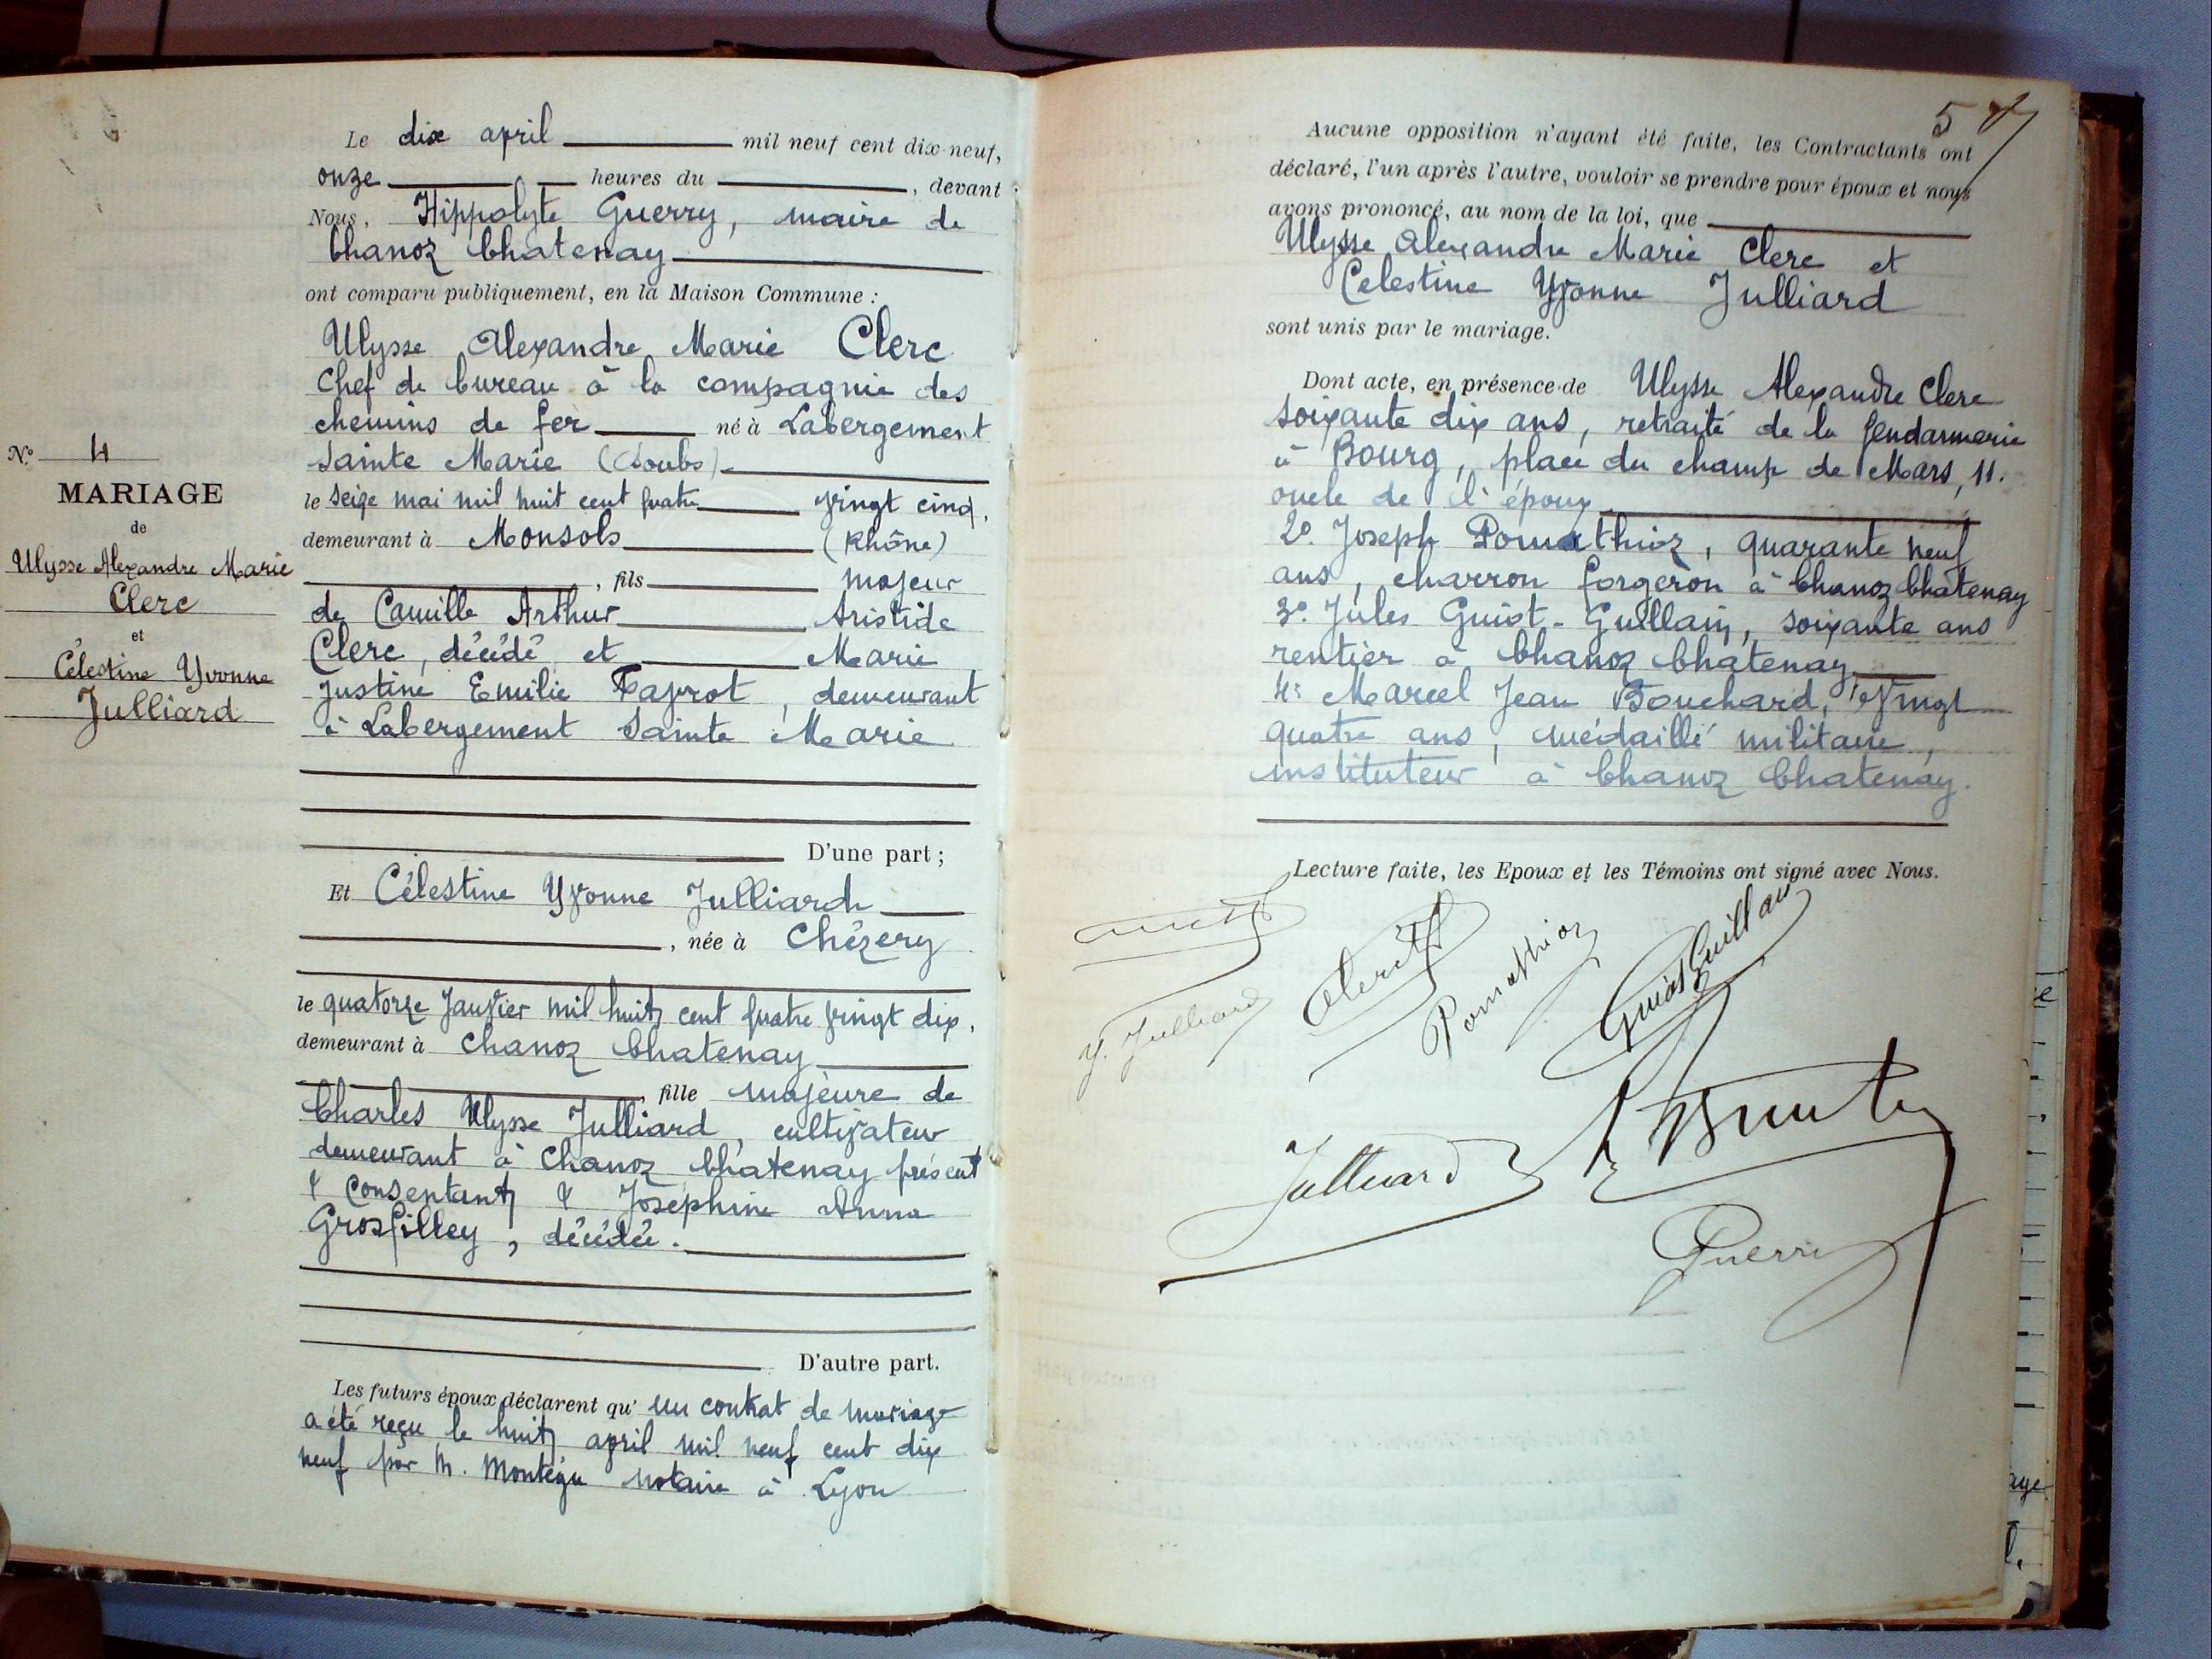 N° 4
MARIAGE
de
Ulysse Alexandre Marie
Clerc
et
Célestine Yvonne
Julliard
Le dix april mil neuf cent dix-neuf,
onze heures du , devant
Nous, Hippolyte Guerry, maire de
Chanoz Chatenay
ont comparu publiquement, en la Maison Commune :
Ulysse Alexandre Marie Clerc
Chef de bureau à la compagnie des
chemins de fer né à Labergement
Sainte Marie (Doubs)
le seize mai mil huit cent quatre vingt cinq,
demeurant à Monsols (Rhône)
, fils majeur
de Camille Arthur Aristide
Clerc, décédé et Marie
Justine Emilie , demeurant
à Labergement Sainte Marie
D'une part ;
Et Célestine Yvonne Julliard
, née à Chézery
le quatorze Janvier mil huit cent quatre vingt dix,
demeurant à Chanoz Chatenay
, fille majeure de
Charles Ulysse Julliard, cultivateur
demeurant à Chanoz Chatenay présent
& Consentant & Joséphine Anna
Grosfilley, décédée.
D'autre part.
Les futurs époux déclarent qu' un contrat de mariage
a été reçu le huit april mil neuf cent dix
neuf par M. Montégu notaire à Lyon
57
Aucune opposition n'ayant été faite, les Contractants ont
déclaré, l'un après l'autre, vouloir se prendre pour époux et nous
avons prononcé, au nom de la loi, que
Ulysse Alexandre Marie Clerc et
Celestine Yvonne Julliard
sont unis par le mariage.
Dont acte, en présence de Ulysse Alexandre Clerc
soixante dix ans, retraité de la gendarmerie
à Bourg, place du champ de Mars, 11.
oncle de l'époux
2° Joseph Pomathioz, quarante neuf
ans, charron forgeron à Chanoz Chatenay
3° Jules Guiot-Guillain, soixante ans
rentier à Chanoz Chatenay
4° Marcel Jean Bouchard, Vingt
quatre ans, médaillé militaire,
instituteur à Chanoz Chatenay.
Lecture faite, les Epoux et les Témoins ont signé avec Nous.
Clerc
Pomathioz
Guiot Guillain
Y. Julliard
Julliard
Guerry